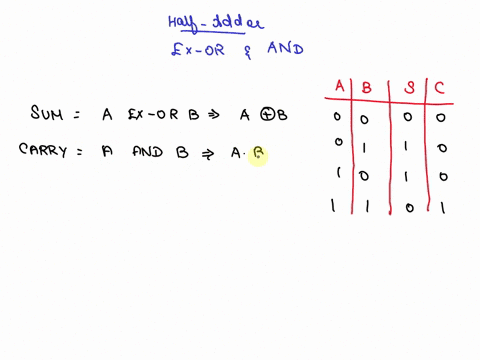 Half-Adder
EX-OR & AND
SUM = A EX-OR B ⇒ A ⊕ B
CARRY = A AND B ⇒ A. B
A B S C
0 0 0 0
0 1 1 0
1 0 1 0
1 1 0 1